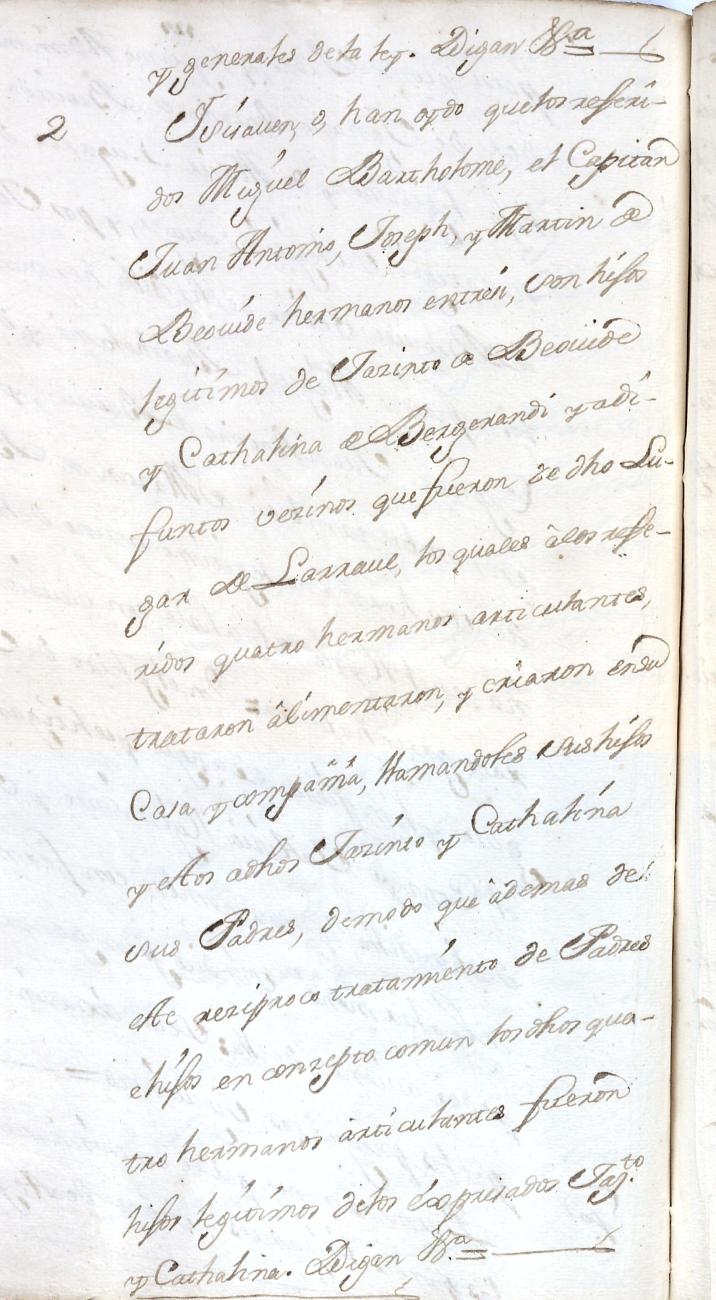 y generales de la ley. Digan &a
2 Y si saven, o, han oydo que los referi-
dos Miguel Bartholome, el Capitan
Juan Antonio, Joseph, y Martin de
Beovide hermanos entresi, son hijos
legitimos de Jazinto de Beovide
y Cathalina de Bergerandi ya di-
funtos vezinos que fueron de dho Lu-
gar de Larraul, los quales â los refe-
ridos quatro hermanos articulantes,
trataron âlimentaron, y criaron en su
Casa y compañia, llamandoles sus hijos
y ellos adhos Jazinto y Cathalina
sus Padres, demodo que âdemas de
este reziproco tratamiento de Padres
e hijos en conzepto comun los dhos qua-
tro hermanos articulantes fueron
hijos legitimos delos expresados Jazto
y Cathalina. Digan &a